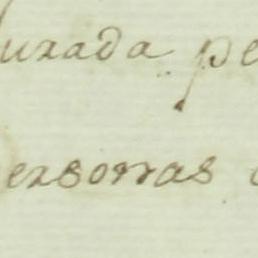 urada pe
ersonas